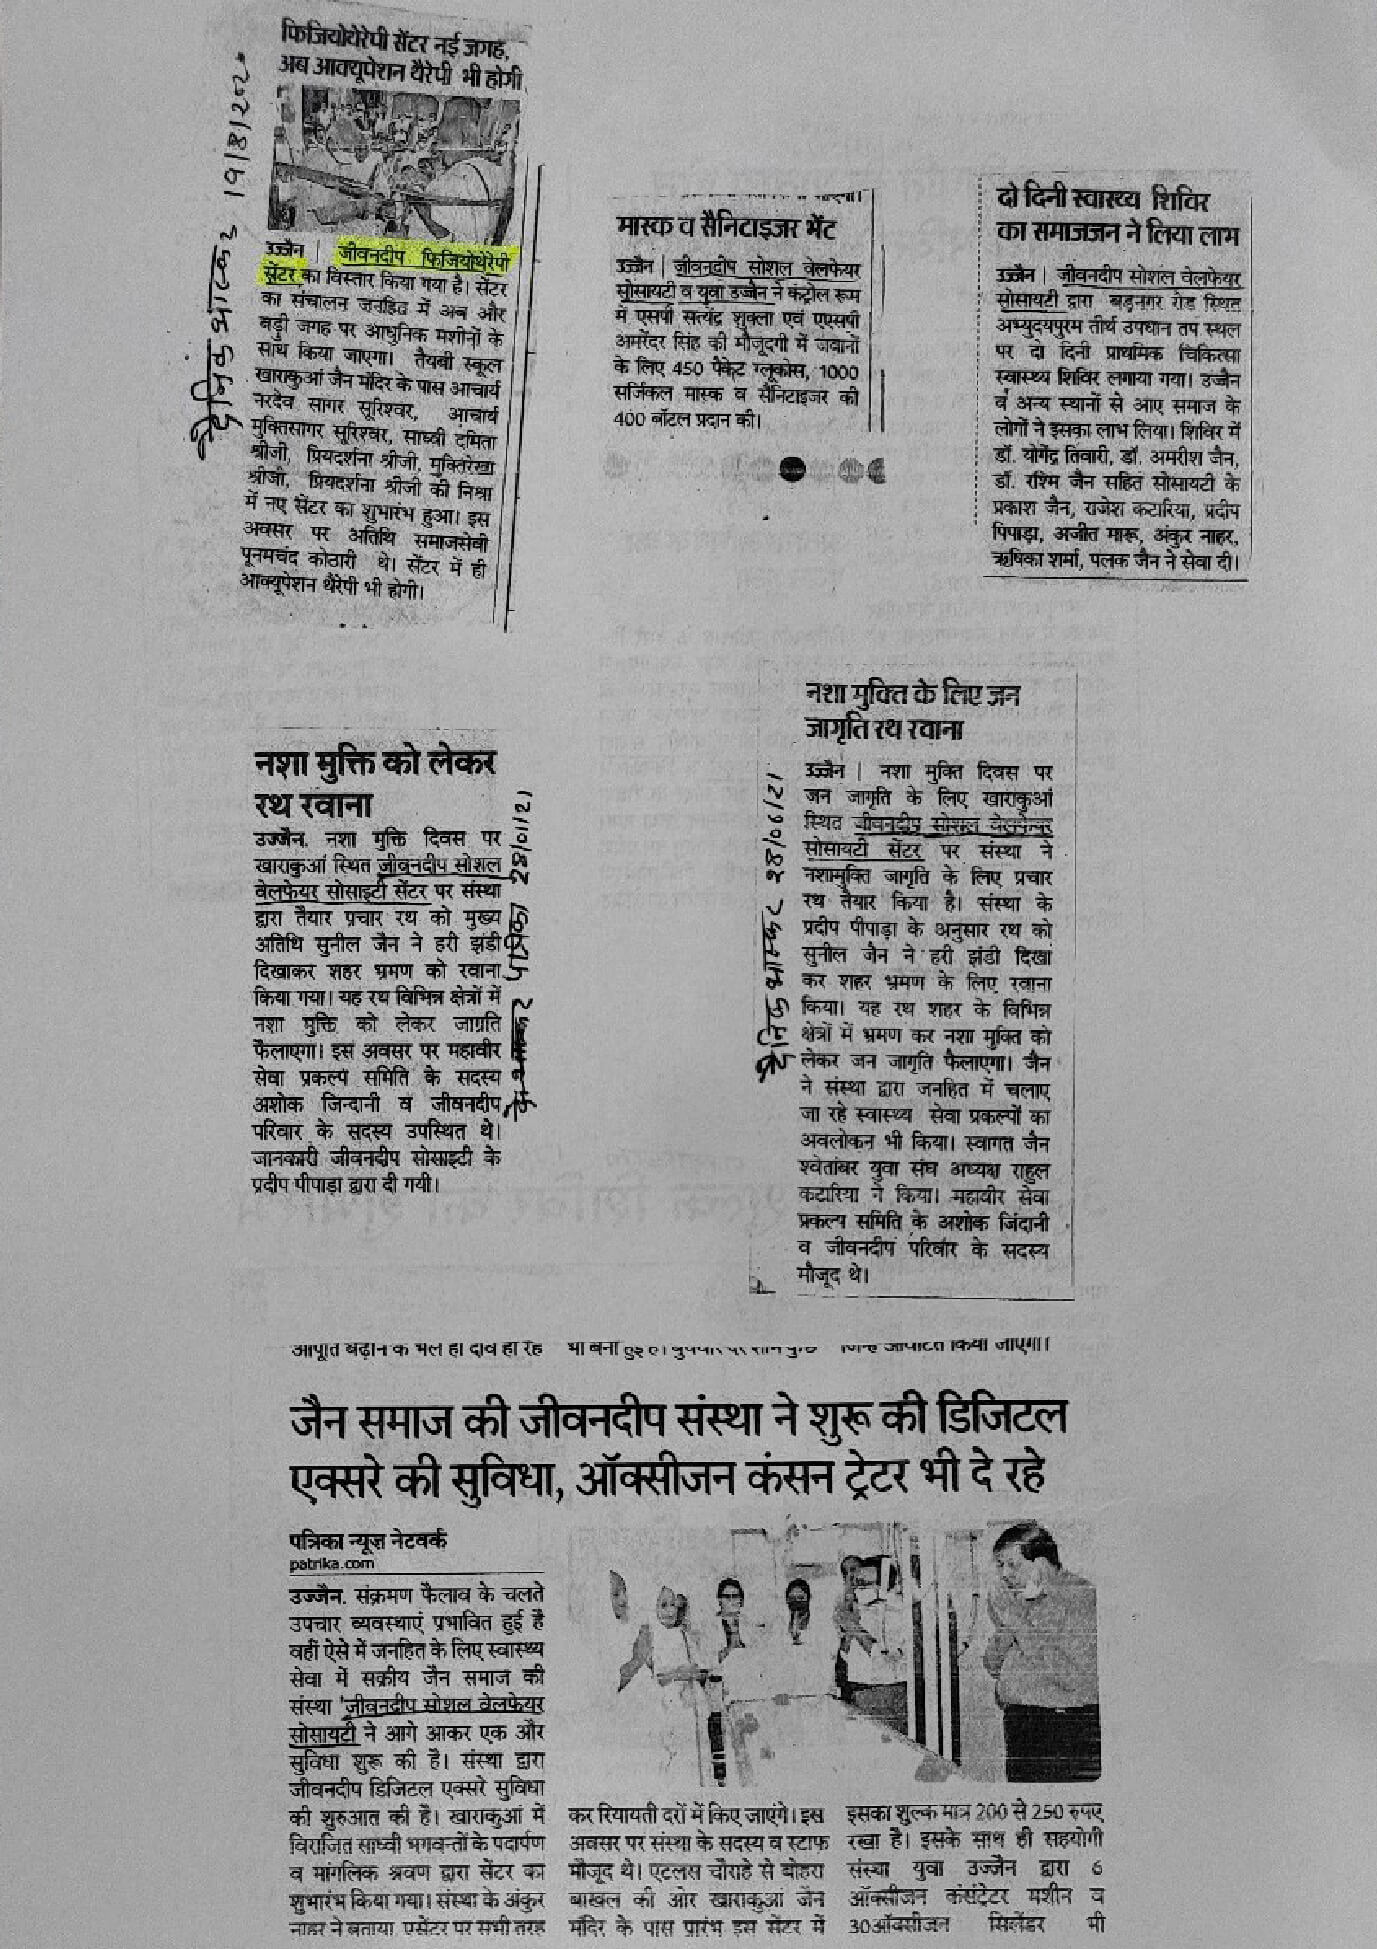 फिजियोथेरेपी सेंटर नई जगह,
अब आक्यूपेशन थैरेपी भी होगी
दैनिक भास्कर 19/8/202
उज्जैन | जीवनदीप फिजियोथेरेपी
सेंटर का विस्तार किया गया है। सेंटर
का संचालन जनहित में अब और
बड़ी जगह पर आधुनिक मशीनों के
साथ किया जाएगा। तैयबी स्कूल
खाराकुआं जैन मंदिर के पास आचार्य
नरदेव सागर सूरिश्वर, आचार्य
मुक्तिसागर सूरिश्वर, साध्वी दमिता
श्रीजी, प्रियदर्शना श्रीजी, मुक्तिरेखा
श्रीजी, प्रियदर्शना श्रीजी की निश्रा
में नए सेंटर का शुभारंभ हुआ। इस
अवसर पर अतिथि समाजसेवी
पूनमचंद कोठारी थे। सेंटर में ही
आक्यूपेशन थैरेपी भी होगी।
मास्क व सैनिटाइजर भेंट
उज्जैन | जीवनदीप सोशल वेलफेयर
सोसायटी व युवा उज्जैन ने कंट्रोल रूम
में एसपी सत्येंद्र शुक्ला एवं एएसपी
अमरेंदर सिंह की मौजूदगी में जवानों
के लिए 450 पैकेट ग्लूकोस, 1000
सर्जिकल मास्क व सैनिटाइजर की
400 बॉटल प्रदान की।
दो दिनी स्वास्थ्य शिविर
का समाजजन ने लिया लाभ
उज्जैन | जीवनदीप सोशल वेलफेयर
सोसायटी द्वारा बड़नगर रोड स्थित
अभ्युदयपुरम तीर्थ उपधान तप स्थल
पर दो दिनी प्राथमिक चिकित्सा
स्वास्थ्य शिविर लगाया गया। उज्जैन
व अन्य स्थानों से आए समाज के
लोगों ने इसका लाभ लिया। शिविर में
डॉ. योगेंद्र तिवारी, डॉ. अमरीश जैन,
डॉ. रश्मि जैन सहित सोसायटी के
प्रकाश जैन, राजेश कटारिया, प्रदीप
पिपाड़ा, अजीत मारू, अंकुर नाहर,
ऋषिका शर्मा, पलक जैन ने सेवा दी।
नशा मुक्ति को लेकर
रथ रवाना
उज्जैन. नशा मुक्ति दिवस पर
खाराकुआं स्थित जीवनदीप सोशल
वेलफेयर सोसाइटी सेंटर पर संस्था
द्वारा तैयार प्रचार रथ को मुख्य
अतिथि सुनील जैन ने हरी झंडी
दिखाकर शहर भ्रमण को रवाना
किया गया। यह रथ विभिन्न क्षेत्रों में
नशा मुक्ति को लेकर जाग्रति
फैलाएगा। इस अवसर पर महावीर
सेवा प्रकल्प समिति के सदस्य
अशोक जिन्दानी व जीवनदीप
परिवार के सदस्य उपस्थित थे।
जानकारी जीवनदीप सोसाइटी के
प्रदीप पीपाड़ा द्वारा दी गयी।
पत्रिका 28/01/21
नशा मुक्ति के लिए जन
जागृति रथ रवाना
दैनिक भास्कर 28/06/21
उज्जैन | नशा मुक्ति दिवस पर
जन जागृति के लिए खाराकुआं
स्थित जीवनदीप सोशल वेलफेयर
सोसायटी सेंटर पर संस्था ने
नशामुक्ति जागृति के लिए प्रचार
रथ तैयार किया है। संस्था के
प्रदीप पीपाड़ा के अनुसार रथ को
सुनील जैन ने हरी झंडी दिखा
कर शहर भ्रमण के लिए रवाना
किया। यह रथ शहर के विभिन्न
क्षेत्रों में भ्रमण कर नशा मुक्ति को
लेकर जन जागृति फैलाएगा। जैन
ने संस्था द्वारा जनहित में चलाए
जा रहे स्वास्थ्य सेवा प्रकल्पों का
अवलोकन भी किया। स्वागत जैन
श्वेतांबर युवा संघ अध्यक्ष राहुल
कटारिया ने किया। महावीर सेवा
प्रकल्प समिति के अशोक जिंदानी
व जीवनदीप परिवार के सदस्य
मौजूद थे।
आपूर्ति बढ़ाने के भले ही दावे हो रहे
जिन्हें आवंटित किया जाएगा।
जैन समाज की जीवनदीप संस्था ने शुरू की डिजिटल
एक्सरे की सुविधा, ऑक्सीजन कंसन ट्रेटर भी दे रहे
पत्रिका न्यूज नेटवर्क
patrika.com
उज्जैन. संक्रमण फैलाव के चलते
उपचार व्यवस्थाएं प्रभावित हुई है
वहीं ऐसे में जनहित के लिए स्वास्थ्य
सेवा में सक्रीय जैन समाज की
संस्था 'जीवनदीप सोशल वेलफेयर
सोसायटी ने आगे आकर एक और
सुविधा शुरू की है। संस्था द्वारा
जीवनदीप डिजिटल एक्सरे सुविधा
की शुरुआत की है। खाराकुआं में
विराजित साध्वी भगवन्तों के पदार्पण
व मांगलिक श्रवण द्वारा सेंटर का
शुभारंभ किया गया। संस्था के अंकुर
नाहर ने बताया एसेंटर पर सभी तरह
कर रियायती दरों में किए जाएंगे। इस
अवसर पर संस्था के सदस्य व स्टाफ
मौजूद थे। एटलस चौराहे से बोहरा
बाखल की ओर खाराकुआं जैन
मंदिर के पास प्रारंभ इस सेंटर में
इसका शुल्क मात्र 200 से 250 रुपए
रखा है। इसके साथ ही सहयोगी
संस्था युवा उज्जैन द्वारा 6
ऑक्सीजन कंसंट्रेटर मशीन व
30ऑक्सीजन सिलेंडर भी